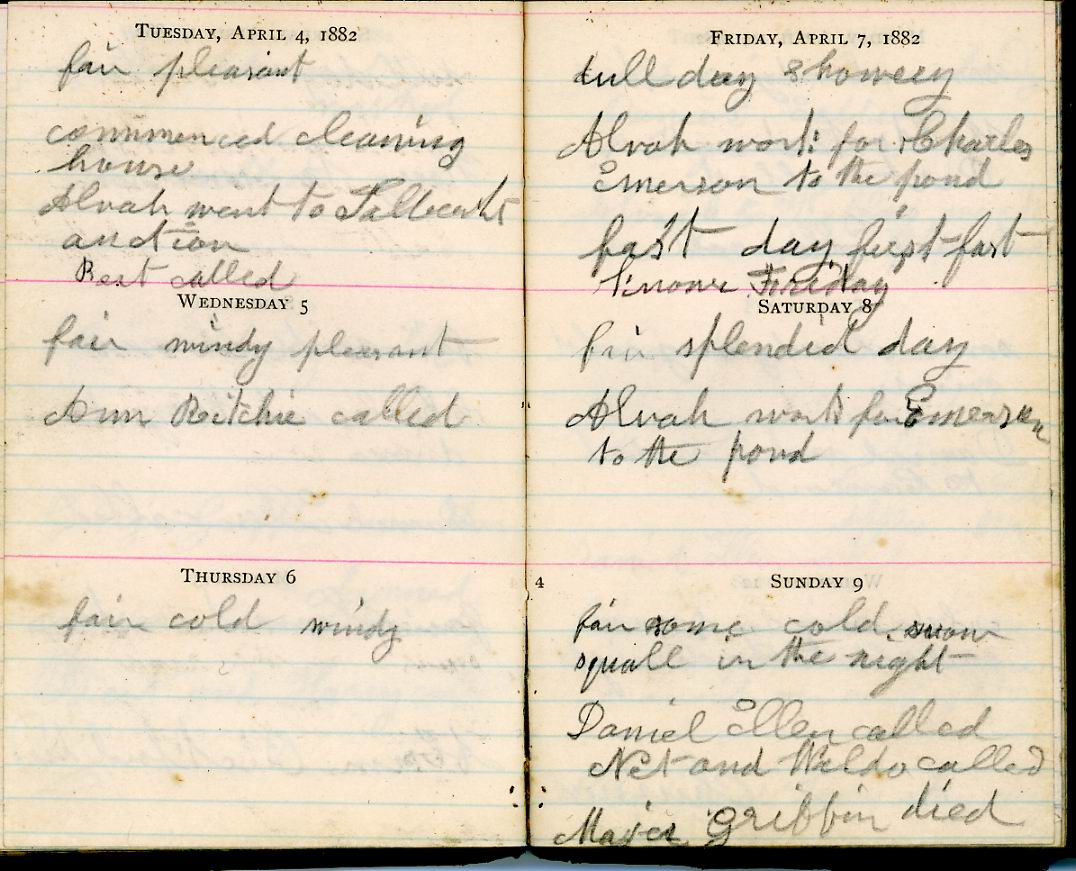 TUESDAY, APRIL 4, 1882
fair pleasant
commenced cleaning
house
Alvah went to
auction
Bert called
WEDNESDAY 5
fair windy pleasant
Ann Ritchie called
THURSDAY 6
fair cold windy
FRIDAY, APRIL 7, 1882
dull day showery
Alvah work for Charles
Emerson to the pond
fast day first fast
I know Friday
SATURDAY 8
fair splendid day
Alvah work for Emerson
to the pond
4
SUNDAY 9
fair some cold snow
squall in the night
Daniel Ellen called
Net and Waldo called
Major Griffin died